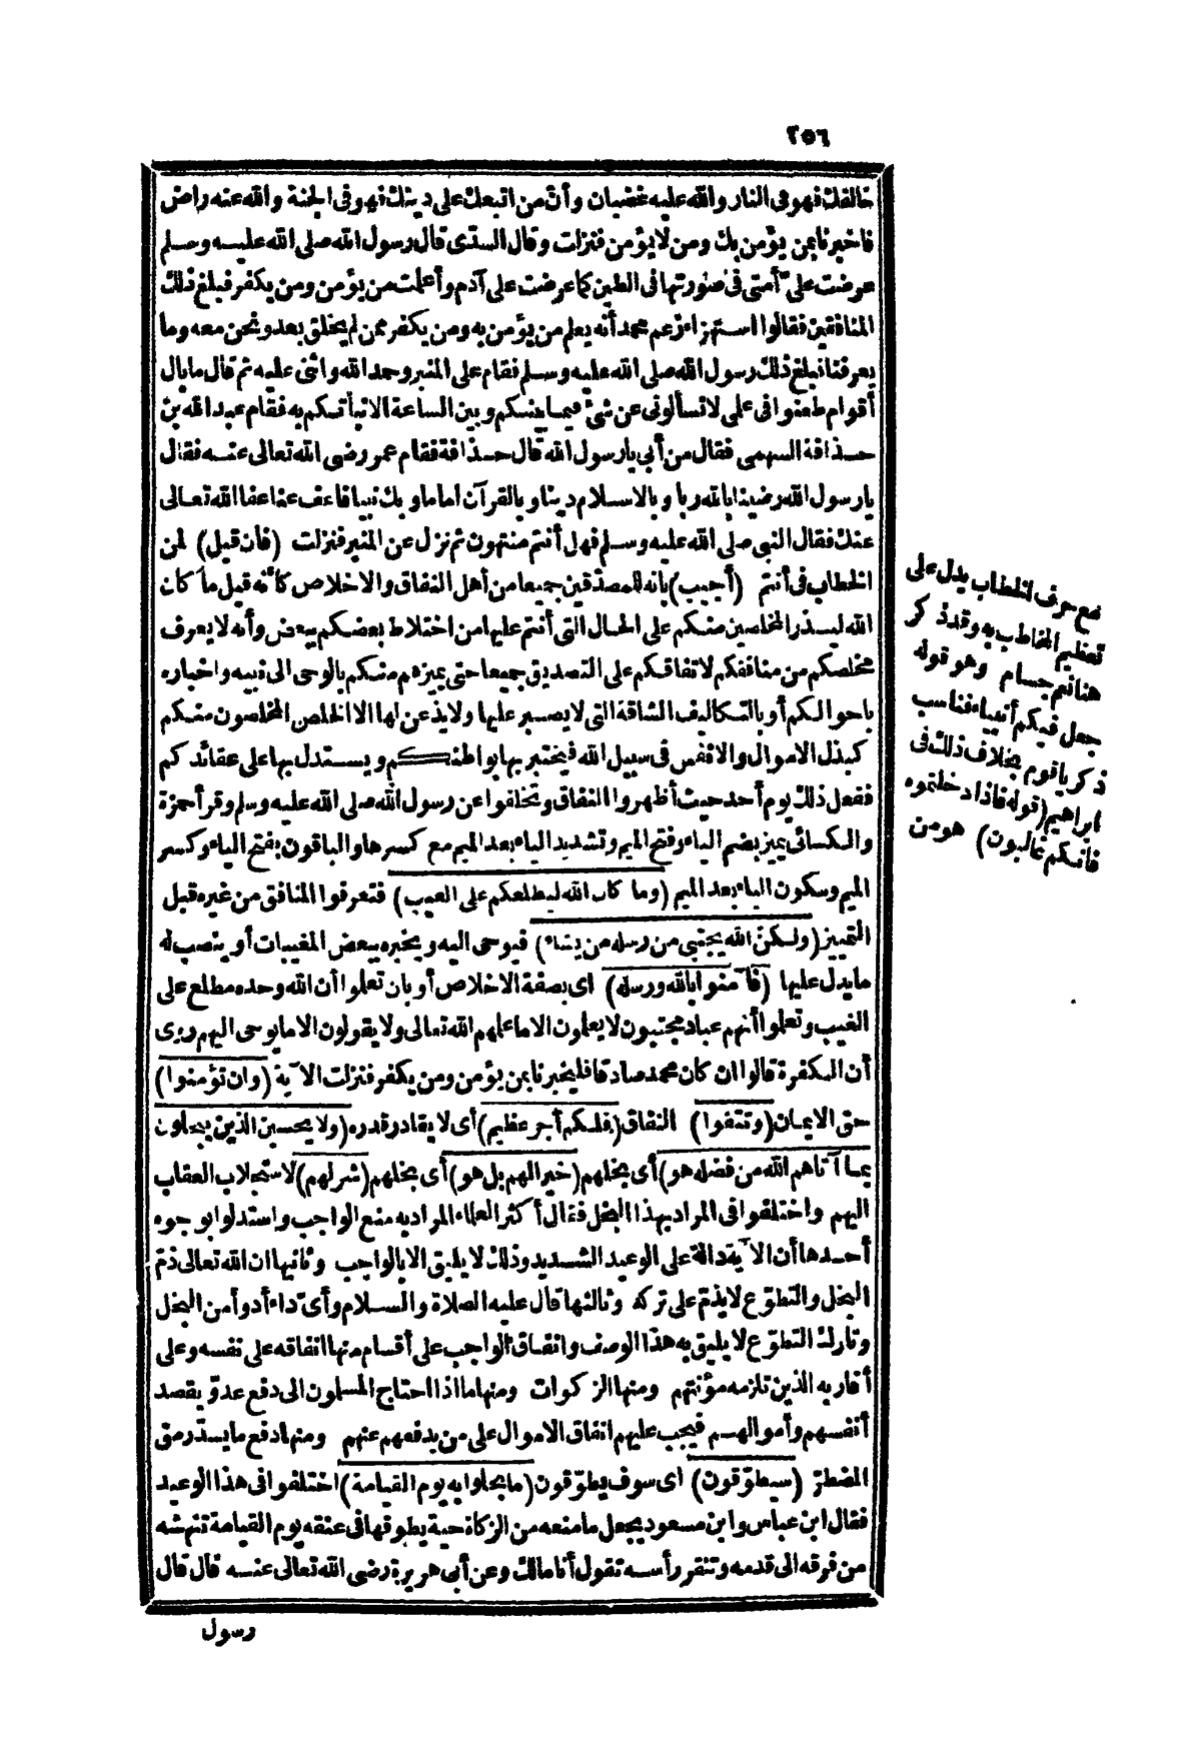 ٢٥٦
خالفك فهو فى النار والله عليه غضبان وأن من اتبعك على دينك فهو فى الجنة والله عنه راض
فاخبرنا بمن يؤمن بك ومن لا يؤمن فنزلت وقال السدى قال رسول الله صلى الله عليه وسلم
عرضت علىّ أمتى فى صورتها فى الطين كما عرضت على آدم وأعلمت من يؤمن ومن يكفر فبلغ ذلك
المنافقين فقالوا استهزاء زعم محمد أنه يعلم من يؤمن به ومن يكفر ممن لم يخلق بعد ونحن معه وما
يعرفنا فبلغ ذلك رسول الله صلى الله عليه وسلم فقام على المنبر وحمد الله واثنى عليه ثم قال ما بال
أقوام طعنوا فى علمى لا تسألونى عن شئ فيما بينكم وبين الساعة الا نبأتكم به فقام عبد الله بن
حذافة السهمى فقال من أبى يا رسول الله قال حذافة فقام عمر رضى الله تعالى عنه فقال
يا رسول الله رضينا بالله ربا وبالاسلام دينا وبالقرآن اماما وبك نبيا فاعف عنا عفا الله تعالى
عنك فقال النبى صلى الله عليه وسلم فهل أنتم منتهون ثم نزل عن المنبر فنزلت (فان قيل) لمن
الخطاب فى أنتم (أجيب) بانه للمصدّقين جميعا من أهل النفاق والاخلاص كأنه قيل ما كان
الله ليذر المخلصين منكم على الحال التى أنتم عليها من اختلاط بعضكم ببعض وأنه لا يعرف
مخلصكم من منافقكم لاتفاقكم على التصديق جميعا حتى يميزهم منكم بالوحى الى نبيه واخباره
باحوالكم أو بالتكاليف الشاقة التى لا يصبر عليها ولا يذعن لها الا الخلص المخلصون منكم
كبذل الاموال والانفس فى سبيل الله فيختبر بها بواطنكم ويستدل بها على عقائدكم
ففعل ذلك يوم أحد حيث أظهروا النفاق وتخلفوا عن رسول الله صلى الله عليه وسلم وقرأ حمزة
والكسائى يميز بضم الياء وفتح الميم وتشديد الياء بعد الميم مع كسرها والباقون بفتح الياء وكسر
الميم وسكون الياء بعد الميم (وما كان الله ليطلعكم على الغيب) فتعرفوا المنافق من غيره قبل
التمييز (ولكنّ الله يجتبى من رسله من يشاء) فيوحى اليه ويخبره ببعض المغيبات أو ينصب له
ما يدل عليها (فآمنوا بالله ورسله) اى بصفة الاخلاص أو بان تعلموا أن الله وحده مطلع على
الغيب وتعلموا أنهم عباد مجتبون لا يعلمون الا ما علمهم الله تعالى ولا يقولون الا ما يوحى اليهم روى
أن الكفرة قالوا ان كان محمد صادقا فليخبرنا بمن يؤمن ومن يكفر فنزلت الآية (وان تؤمنوا)
حق الايمان (وتتقوا) النفاق (فلكم أجر عظيم) أى لا يقادر قدره (ولا يحسبن الذين يبخلون
بما آتاهم الله من فضله هو) أى بخلهم (خيرا لهم بل هو) أى بخلهم (شر لهم) لاستجلاب العقاب
اليهم واختلفوا فى المراد بهذا البخل فقال أكثر العلماء المراد به منع الواجب واستدلوا بوجوه
أحدها أن الآية دالة على الوعيد الشديد وذلك لا يليق الا بالواجب وثانيها ان الله تعالى ذمّ
البخل والتطوّع لا يذمّ على تركه وثالثها قال عليه الصلاة والسلام وأىّ داء أدوأ من البخل
وتارك التطوّع لا يليق به هذا الوصف وانفاق الواجب على أقسام منها انفاقه على نفسه وعلى
أقاربه الذين تلزمه مؤنتهم ومنها الزكوات ومنها ما اذا احتاج المسلمون الى دفع عدوّ يقصد
أنفسهم وأموالهم فيجب عليهم انفاق الاموال على من يدفعهم عنهم ومنها دفع ما يسدّ رمق
المضطرّ (سيطوّقون) اى سوف يطوّقون (ما بخلوا به يوم القيامة) اختلفوا فى هذا الوعيد
فقال ابن عباس وابن مسعود يجعل ما منعه من الزكاة حية يطوقها فى عنقه يوم القيامة تنهشه
من فرقه الى قدمه وتنقر رأسه تقول أنا مالك وعن أبى هريرة رضى الله تعالى عنه قال قال
رسول
مع حرف الخطاب يدل على
تعظيم المخاطب به وقد ذكر
هنا نعم جسام وهو قوله
جعل فيكم أنبياء فناسب
ذكر يا قوم بخلاف ذلك فى
ابراهيم (قوله فاذا دخلتموه
فانكم غالبون) هو من